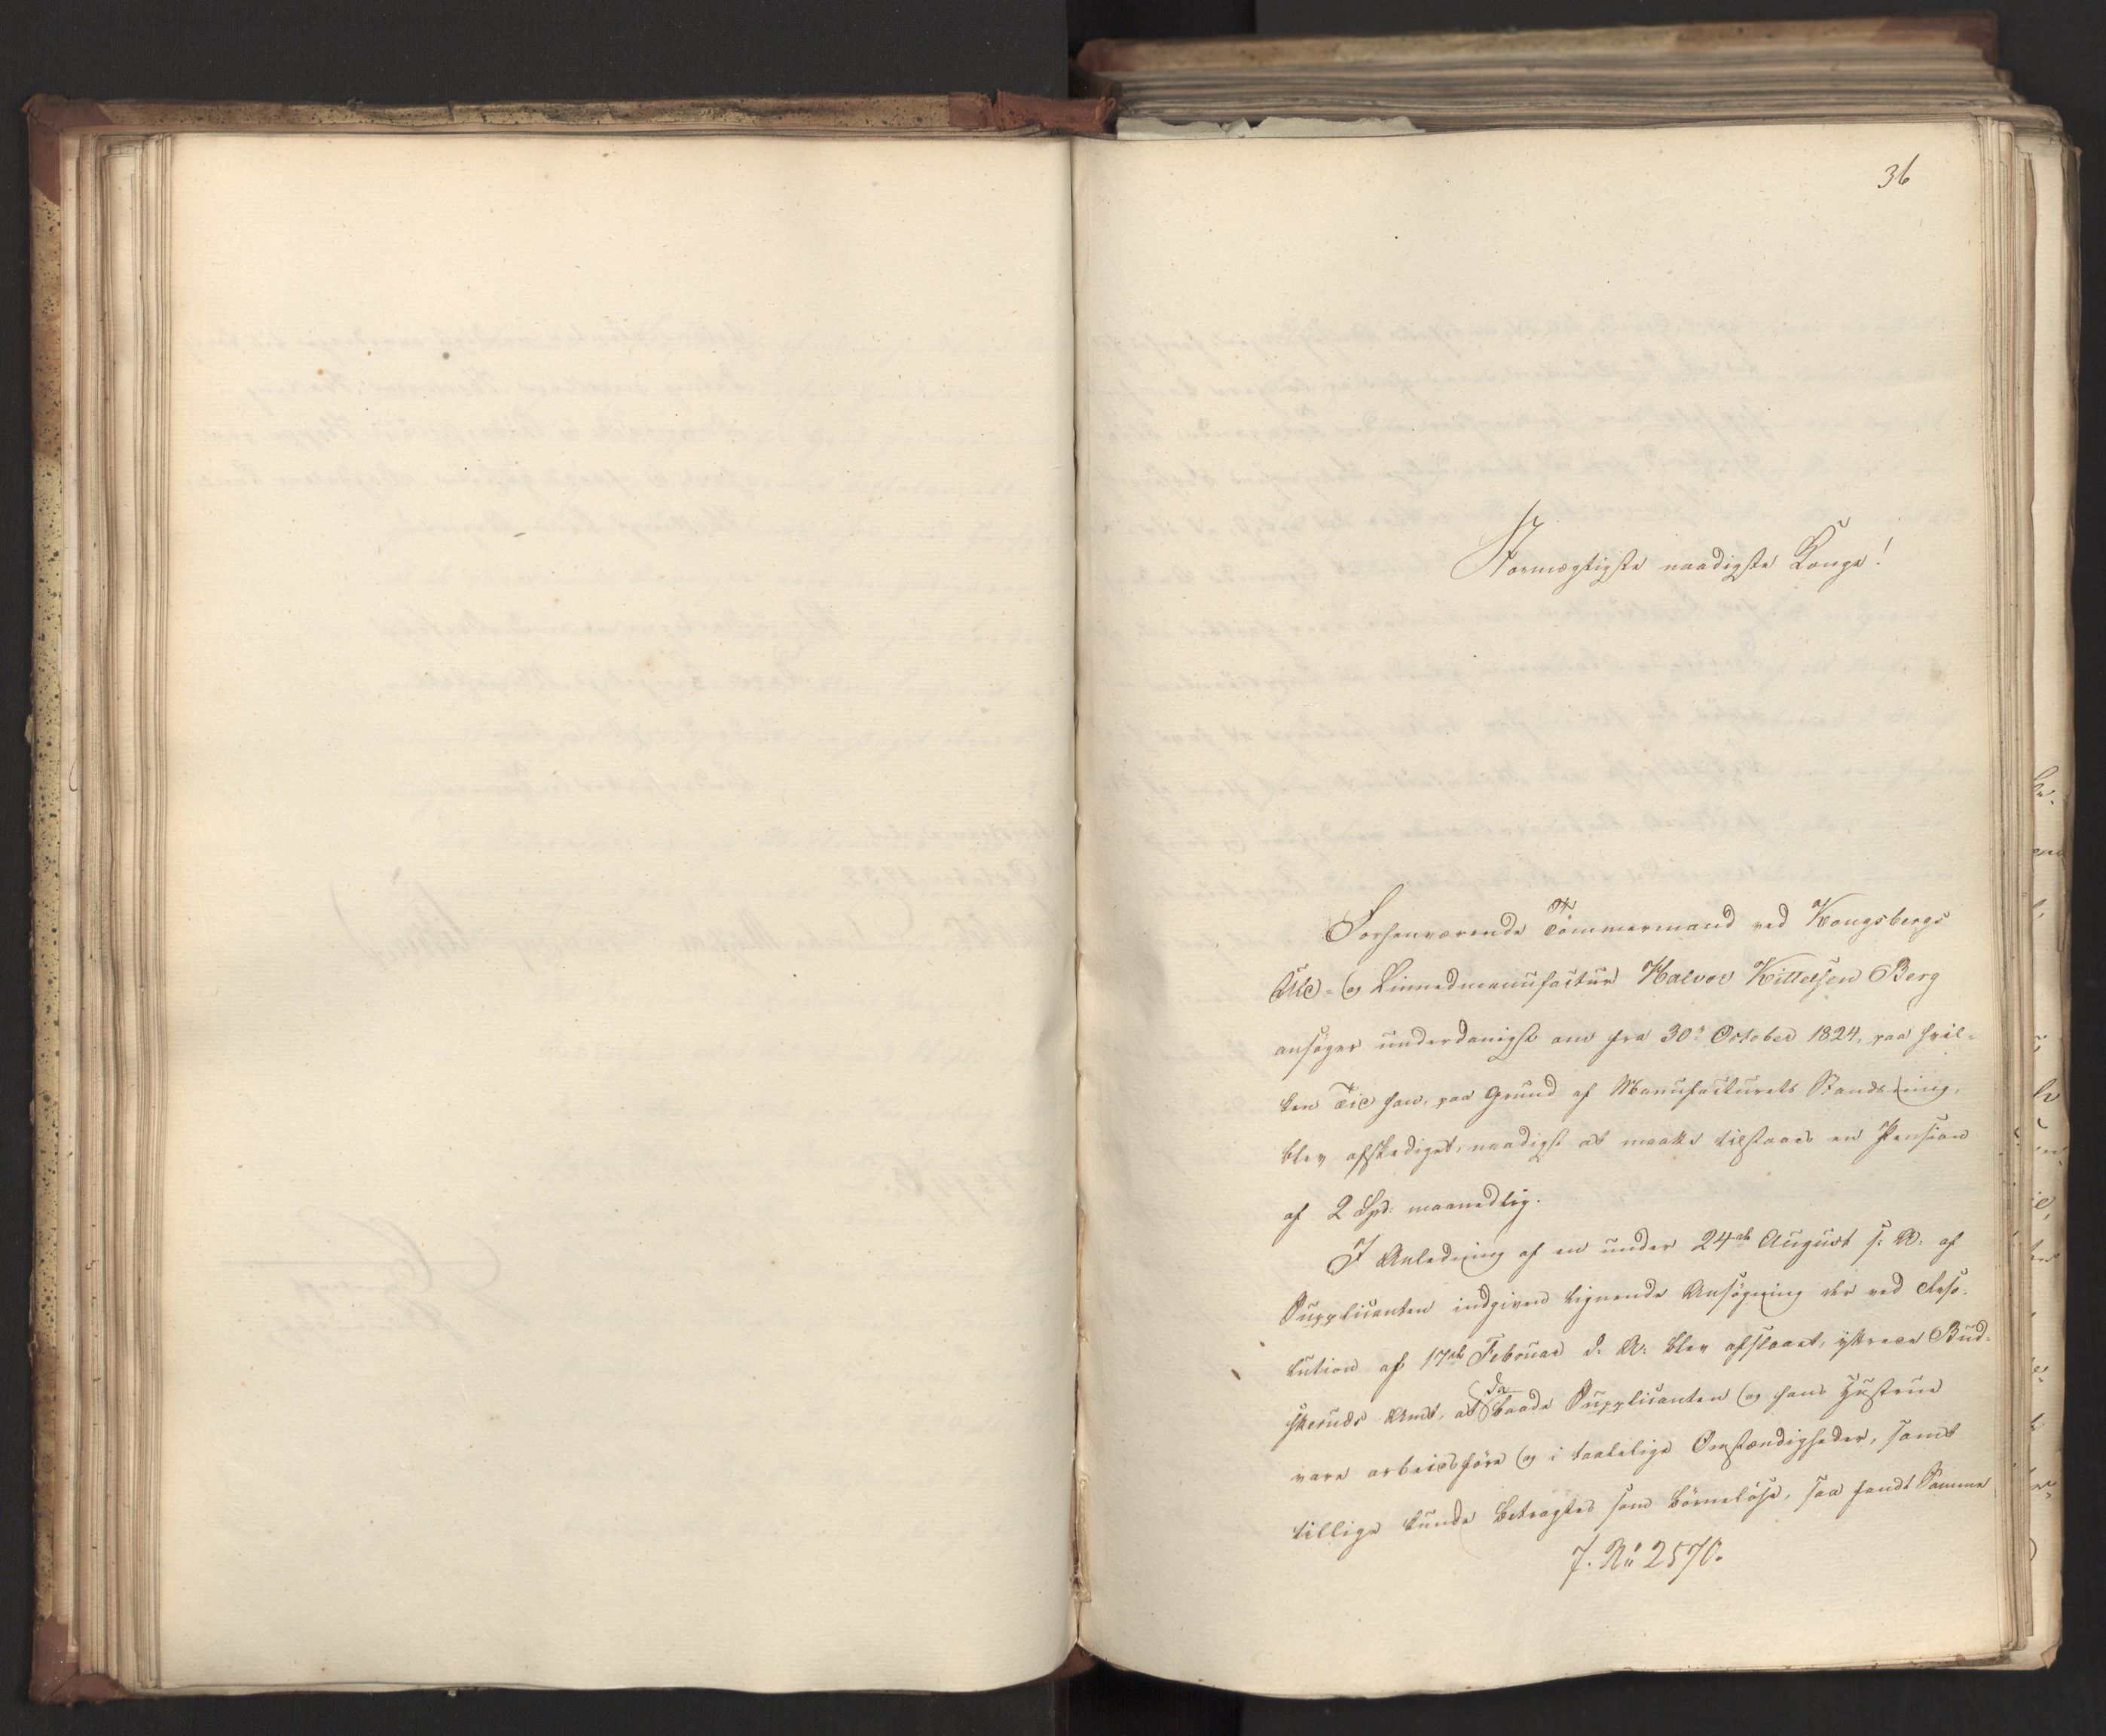 36
Stormægtigste naadigste Konge!
Forhenværende Tömmermand ved Kongsbergs
Uld- og Linnedmanufactur Halvor Kittelsen Berg
ansøger underdanigst om fra 30te October 1824, paa hvil-
ken Tid han, paa Grund af Manufacturets Standsning,
blev afskediget, naadigst at maatte tilstaaes en Pension
af 2 Spd: maanedlig.
I Anledning af en under 24de August f: A: af
Supplicanten indgiven lignende Ansøgning der ved Reso-
lution af 17de Februar d: A: blev afslaaet, yttrede Bud-
skeruds Amt, at da baade Supplicanten og hans Hustrue
vare arbeidsføre og i taalelige Omstændigheder, samt
tillige kunde betragtes som børneløse, saa fandt Samme
J. No 2570.